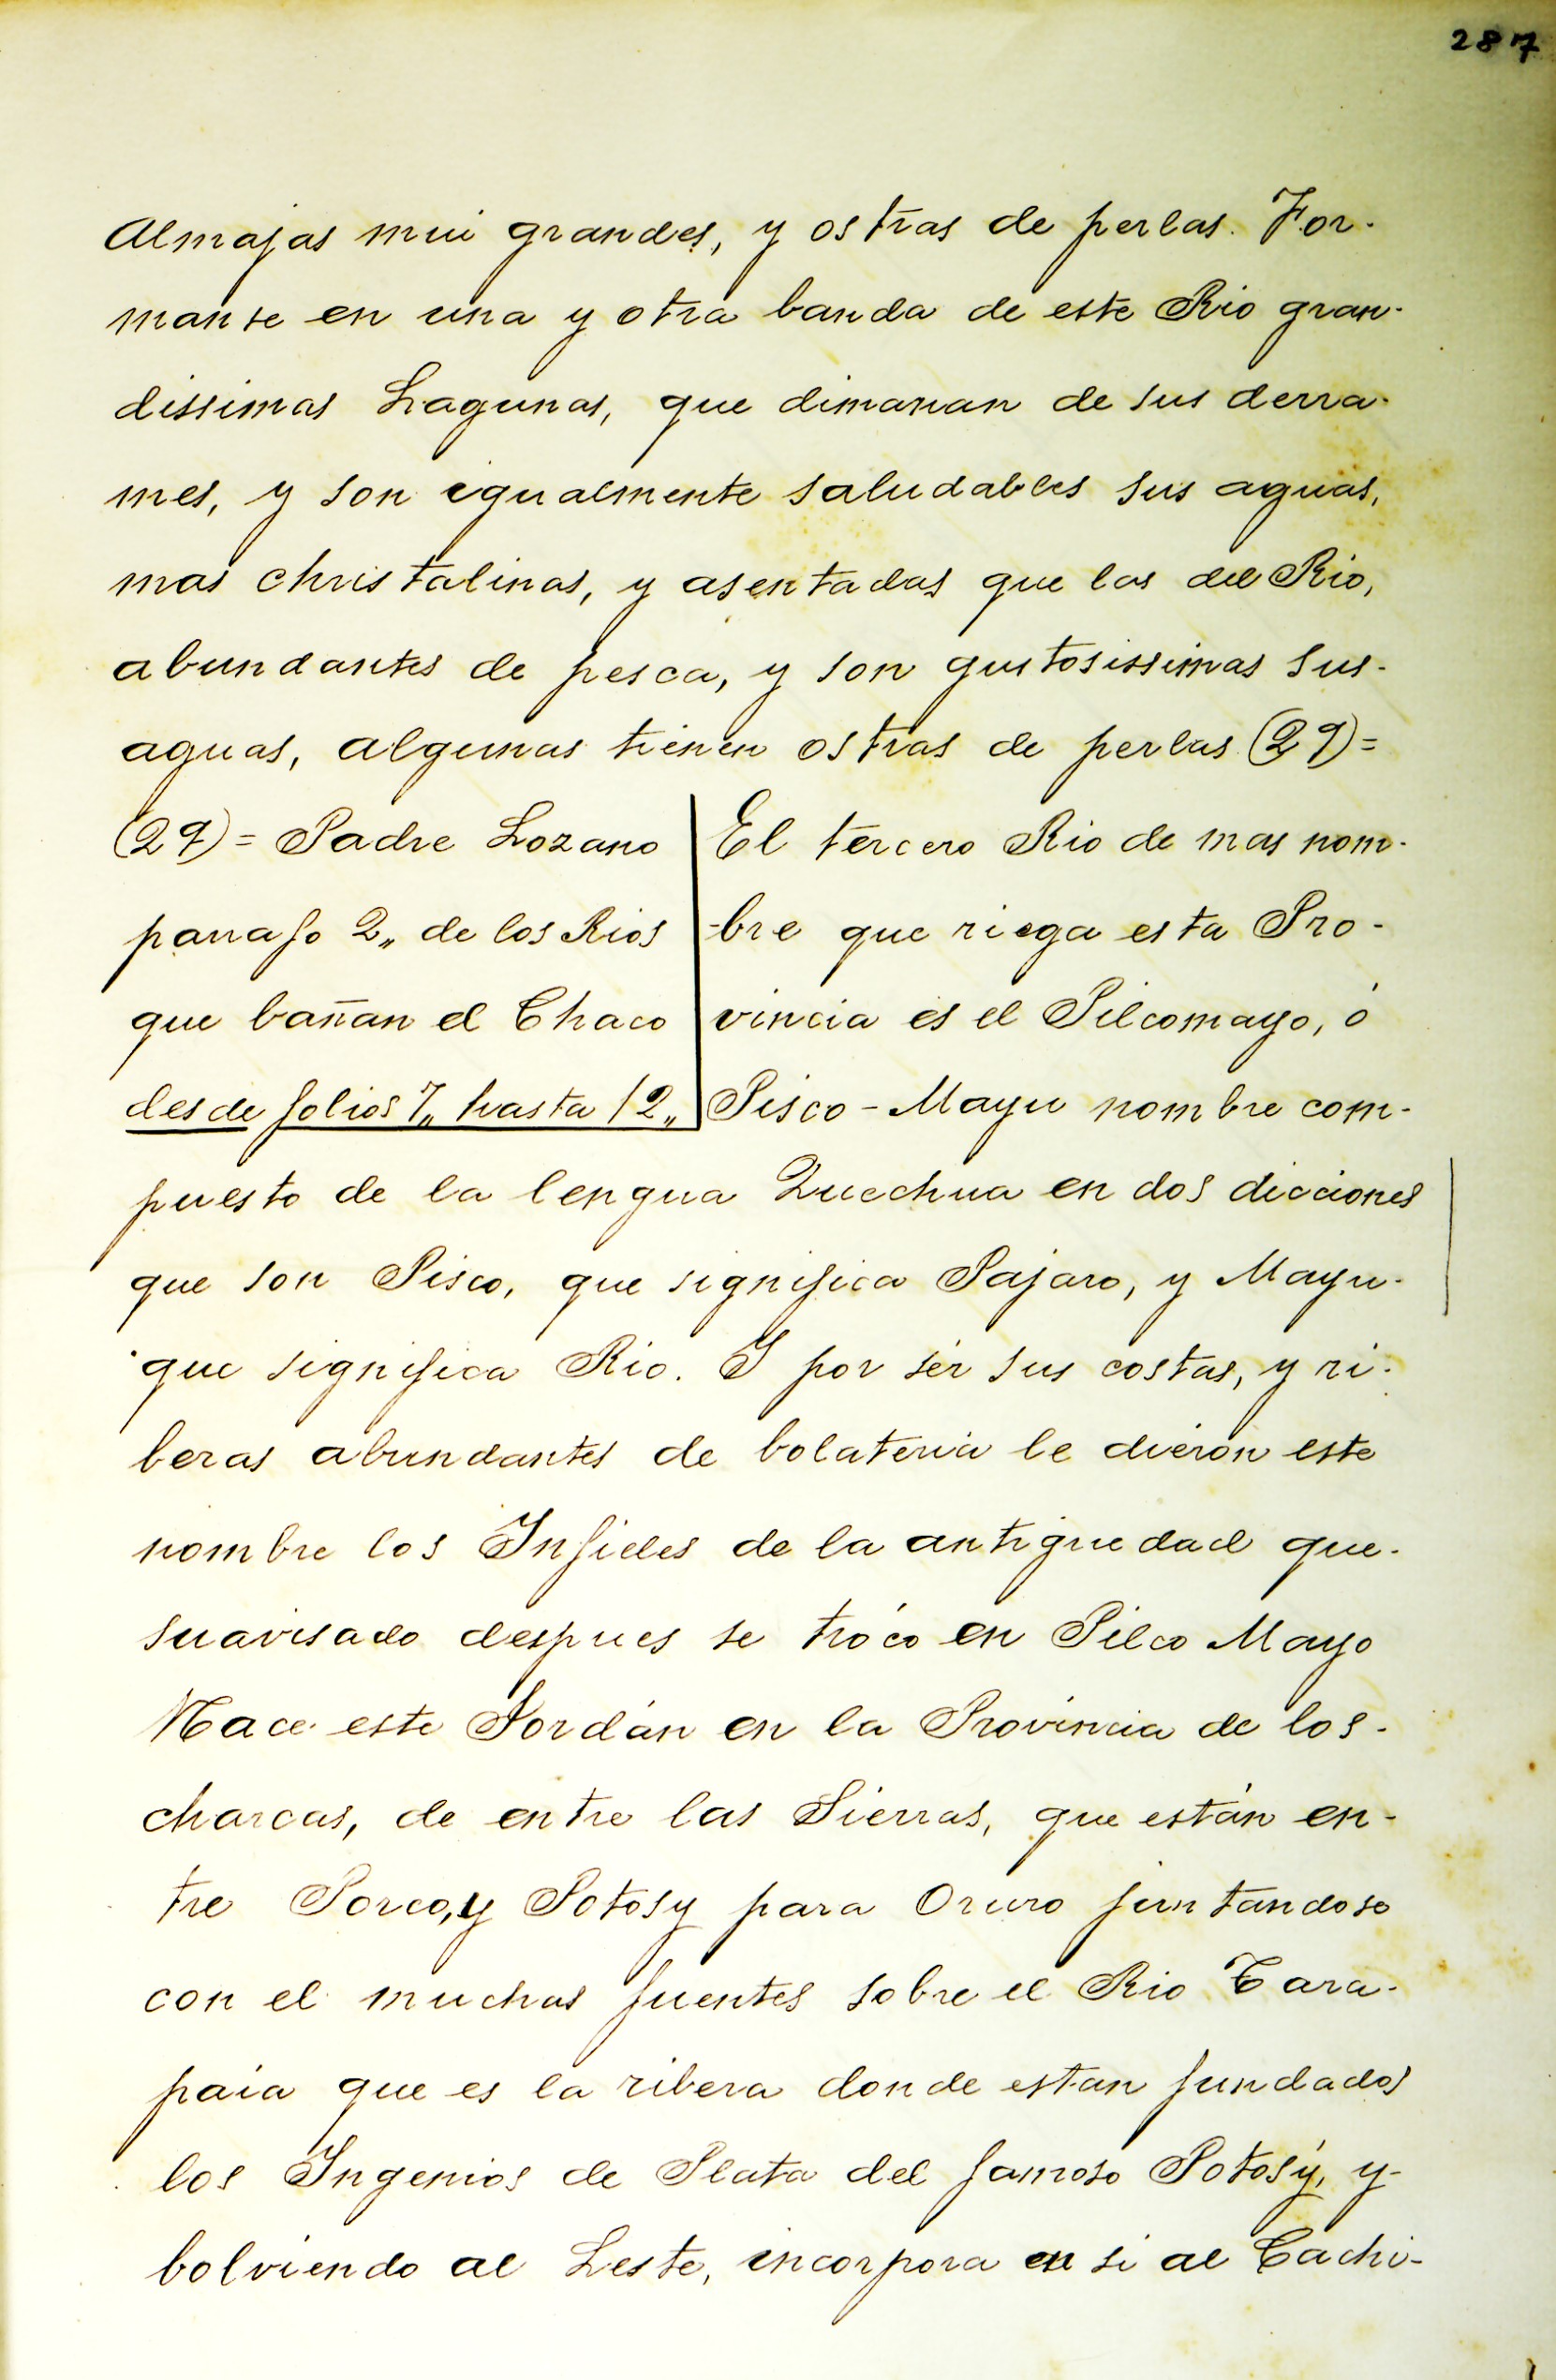 287
Almajas mui grandes, y ostras de perlas. For-
manse en una y otra banda de este Rio gran-
dissimas Lagunas, que dimanan de sus derra-
mes, y son igualmente saludables sus aguas,
mas christalinas, y asentadas que las del Rio,
abundantes de pesca, y son gustosissimas sus-
aguas, algunas tienen ostras de perlas (29)=
(29)= Padre Lozano
parrafo 2,, de los Rios
que bañan el Chaco
desde folios 7,, hasta 12,,
El tercero Rio de mas nom-
-bre que riega esta Pro-
vincia es el Pilcomayo, ó
Pisco-Mayu nombre com-
puesto de la lengua Quechua en dos dicciones
que son Pisco, que significa Pajaro, y Mayu-
que significa Rio. Y por sér sus costas, y ri-
beras abundantes de bolateria le dieron este
nombre los Infieles de la antiguedad que-
suavisado despues se tróco en Pilco Mayo
Nace este Jordán en la Provincia de los-
charcas, de entre las Sierras, que están en-
tre Porco, y Potosy para Oruro juntandose
con el muchas fuentes sobre el Rio Tara-
paia que es la ribera donde estan fundados
los Ingenios de Plata del famoso Potosý, y-
bolviendo al Leste, incorpora en si al Cachi-